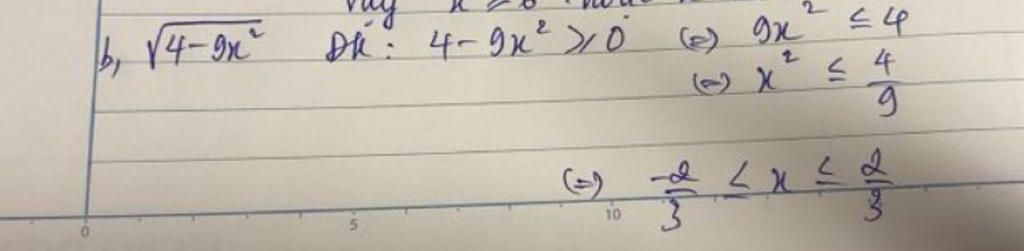 vậy x ≥ 0
b, √(4-9x²) ĐK: 4-9x² ≥ 0 (=) 9x² ≤ 4
(=) x² ≤ 4/9
(=) -2/3 ≤ x ≤ 2/3
0 5 10